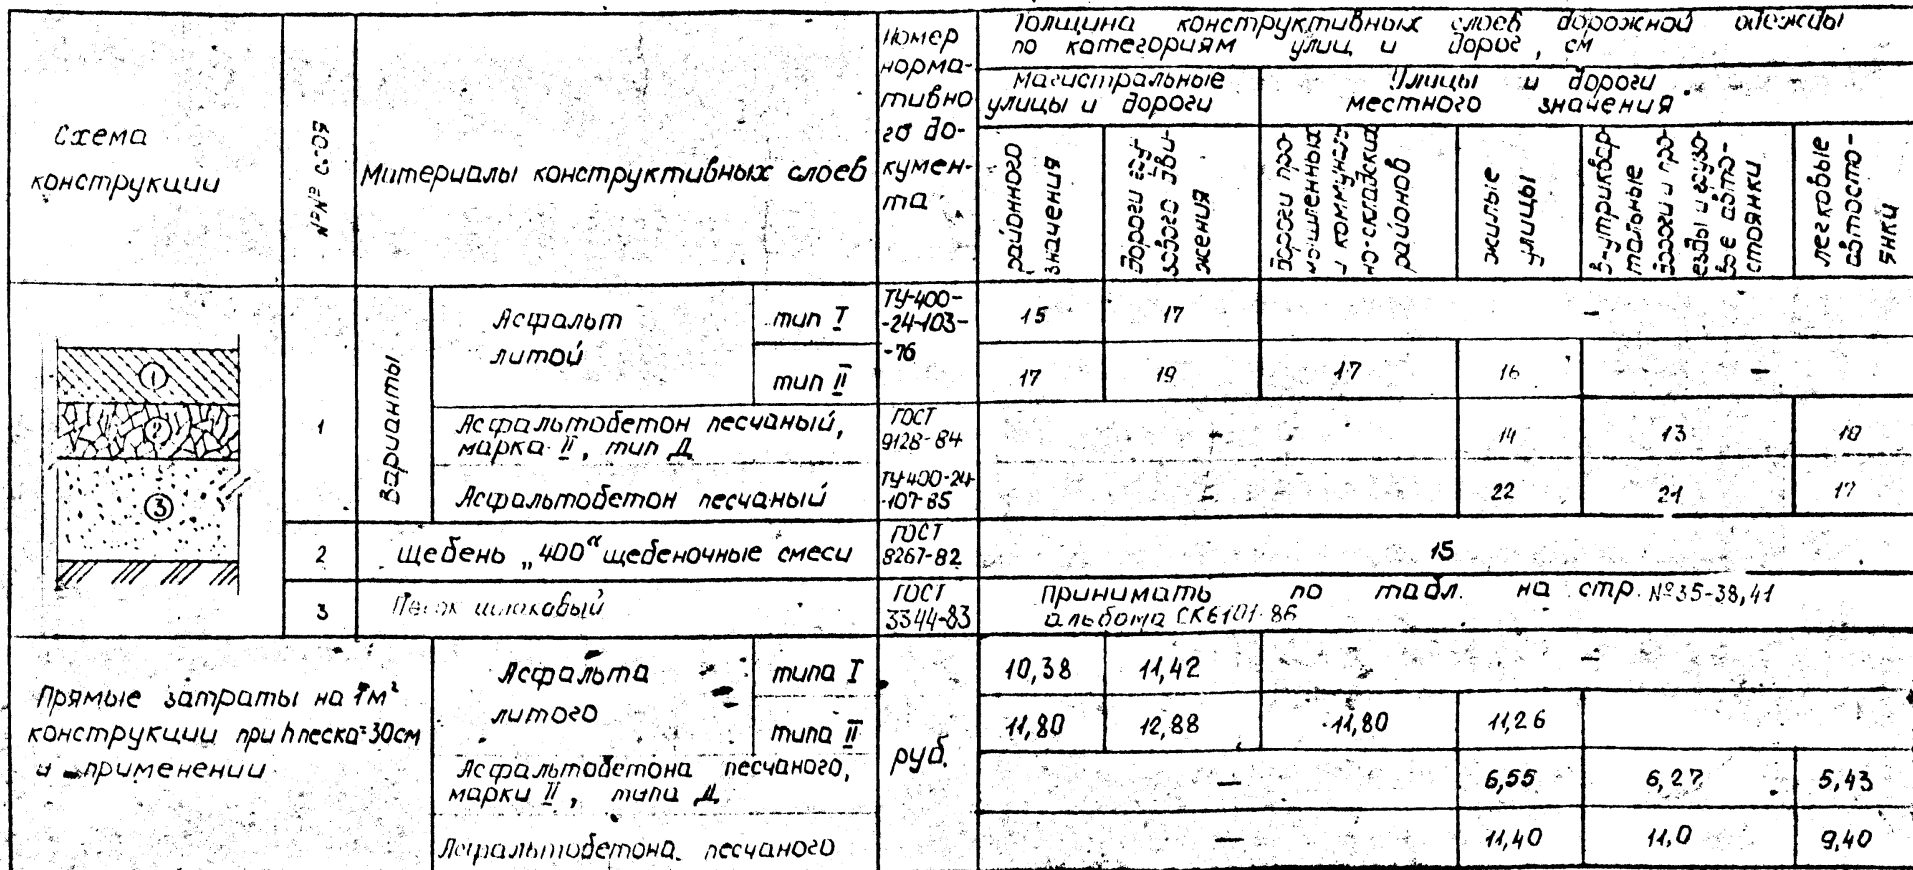 Схема
конструкции
№№ слоя
Материалы конструктивных слоев
Номер
норма-
тивно
го до-
кумен-
та
Толщина конструктивных слоев дорожной одежды
по категориям улиц и дорог, см
магистральные
улицы и дороги
Улицы и дороги
местного значения
районного
значения
дороги гру-
зового дви-
жения
дороги про-
мышленных
и коммуналь-
но-складских
районов
жилые
улицы
внутриквар-
тальные
дороги и про-
езды и грузо-
вые авто-
стоянки
легковые
автосто-
янки
1
2
3
1
Варианты
Асфальт
литой
тип I
ТУ-400-
-24-103-
-76
15 17 -
тип II
17 19 17 16 -
Асфальтобетон песчаный,
марка II, тип Д
ГОСТ
9128-84
- 14 13 10
Асфальтобетон песчаный
ТУ-400-24
-107-85
- 22 21 17
2 щебень „400“ щебеночные смеси
ГОСТ
8267-82
15
3 Песок шлаковый
ГОСТ
3344-83
принимать по табл. на стр. №35-38,41
альбома СК6101-86
Прямые затраты на 1м²
конструкции при h песка=30см
и применении
Асфальта
литого
типа I
10,38 11,42 -
типа II
11,80 12,88 11,80 11,26
руб.
Асфальтобетона песчаного,
марки II, типа Д
- 6,55 6,27 5,43
Асфальтобетона песчаного
- 11,40 11,0 9,40